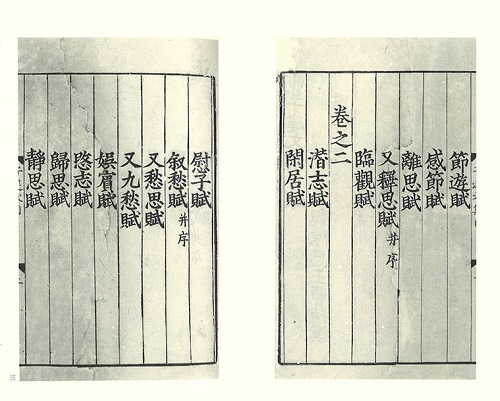 節遊賦
感節賦
離思賦
又釋思賦 并序
臨觀賦
卷之二
潜志賦
閑居賦
慰子賦
叙愁賦 并序
又愁思賦
又九愁賦
娯賓賦
愍志賦
歸思賦
静思賦